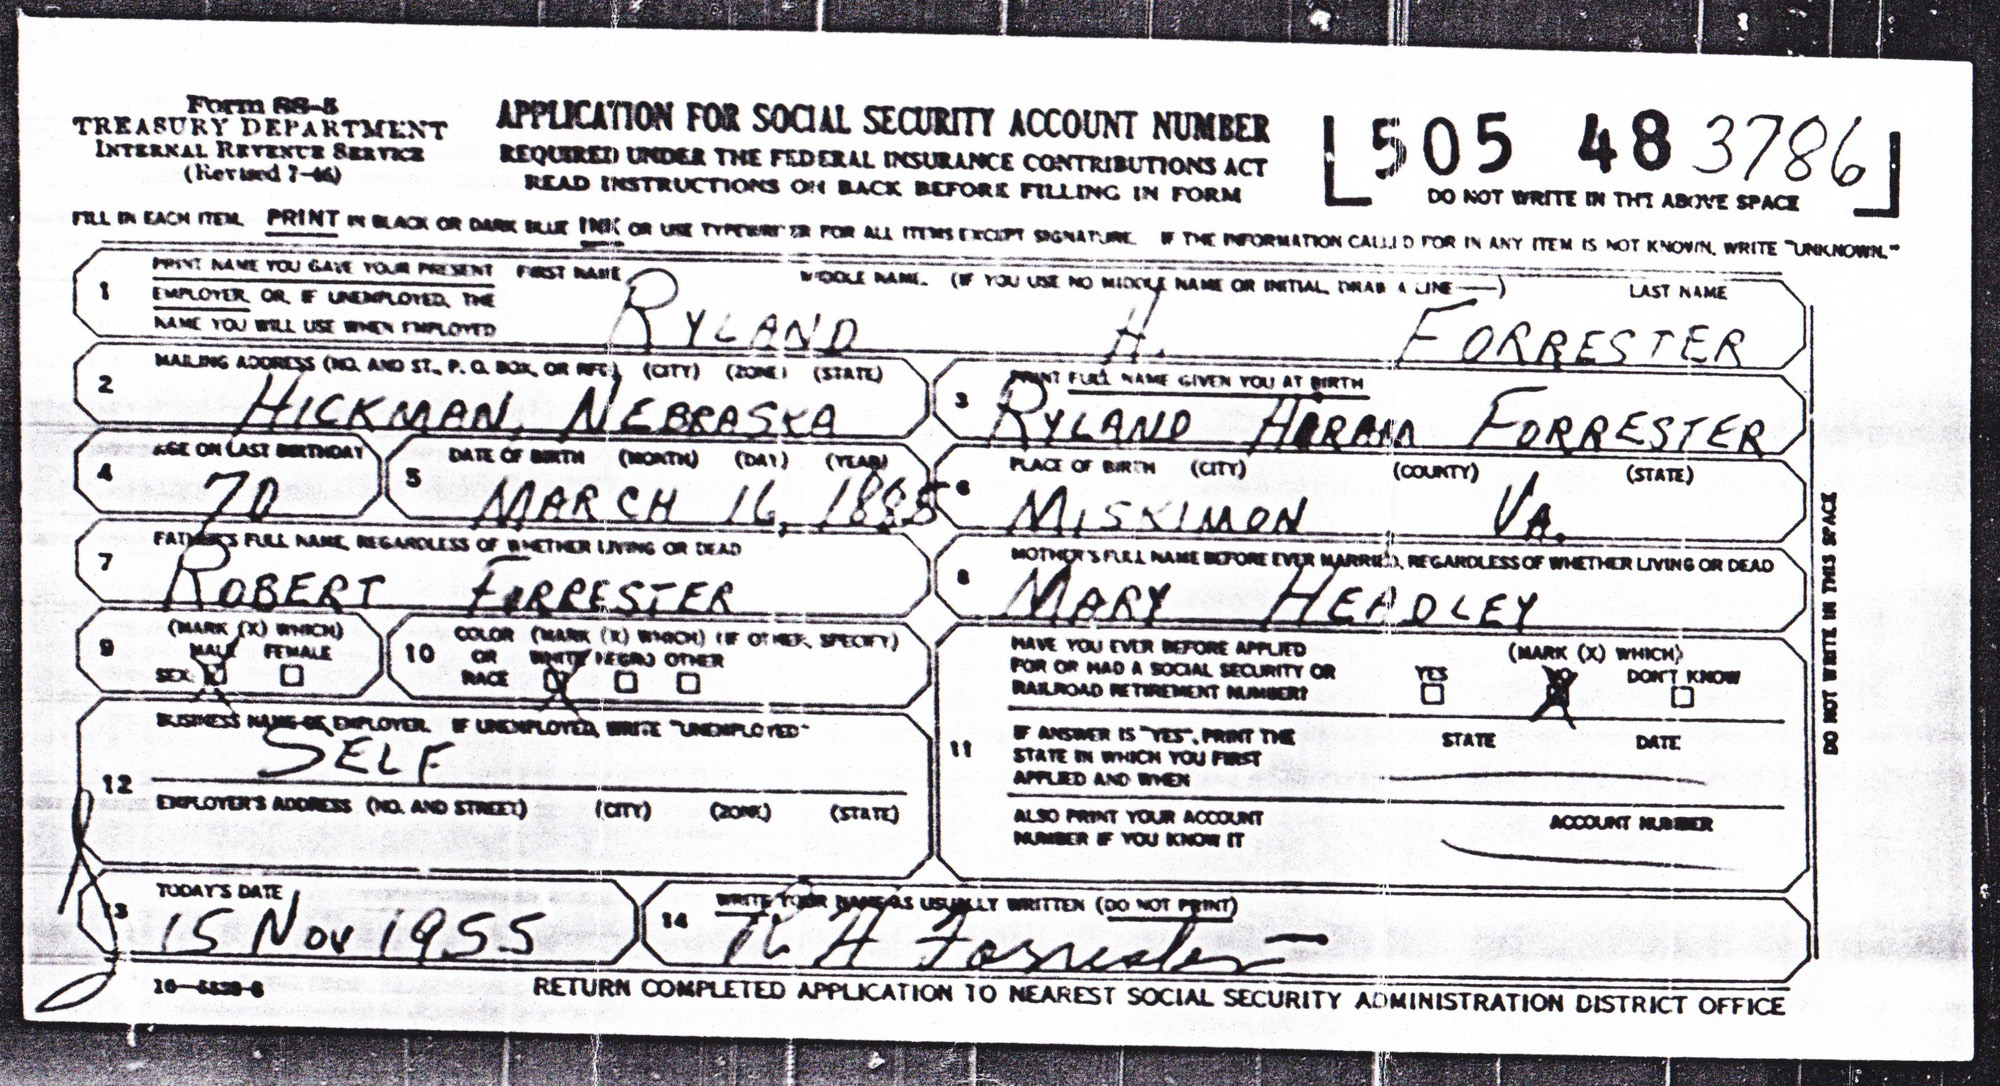 Form SS-5
TREASURY DEPARTMENT
INTERNAL REVENUE SERVICE
(Revised 7-46)
APPLICATION FOR SOCIAL SECURITY ACCOUNT NUMBER
REQUIRED UNDER THE FEDERAL INSURANCE CONTRIBUTIONS ACT
READ INSTRUCTIONS ON BACK BEFORE FILLING IN FORM
505 48 3786
DO NOT WRITE IN THE ABOVE SPACE
FILL IN EACH ITEM. PRINT IN BLACK OR DARK BLUE INK OR USE TYPEWRITER FOR ALL ITEMS EXCEPT SIGNATURE. IF THE INFORMATION CALLED FOR IN ANY ITEM IS NOT KNOWN, WRITE "UNKNOWN."
1 PRINT NAME YOU GAVE YOUR PRESENT
EMPLOYER, OR, IF UNEMPLOYED, THE
NAME YOU WILL USE WHEN EMPLOYED
FIRST NAME MIDDLE NAME. (IF YOU USE NO MIDDLE NAME OR INITIAL, DRAW A LINE——) LAST NAME
RYLAND H. FORRESTER
2 MAILING ADDRESS (NO. AND ST., P. O. BOX, OR RFD) (CITY) (ZONE) (STATE)
HICKMAN, NEBRASKA
3 PRINT FULL NAME GIVEN YOU AT BIRTH
RYLAND FORRESTER
4 AGE ON LAST BIRTHDAY
70
5 DATE OF BIRTH (MONTH) (DAY) (YEAR)
MARCH 16,
6 PLACE OF BIRTH (CITY) (COUNTY) (STATE)
MISKIMON VA.
7 FATHER'S FULL NAME, REGARDLESS OF WHETHER LIVING OR DEAD
ROBERT FORRESTER
8 MOTHER'S FULL NAME BEFORE EVER MARRIED, REGARDLESS OF WHETHER LIVING OR DEAD
MARY HEADLEY
9 (MARK (X) WHICH)
MALE FEMALE
SEX: X
10 COLOR (MARK (X) WHICH) (IF OTHER, SPECIFY)
OR WHITE NEGRO OTHER
RACE X
11 HAVE YOU EVER BEFORE APPLIED
FOR OR HAD A SOCIAL SECURITY OR
RAILROAD RETIREMENT NUMBER?
(MARK (X) WHICH)
YES NO DON'T KNOW
X
IF ANSWER IS "YES", PRINT THE
STATE IN WHICH YOU FIRST
APPLIED AND WHEN
STATE DATE
ALSO PRINT YOUR ACCOUNT
NUMBER IF YOU KNOW IT
ACCOUNT NUMBER
12 BUSINESS NAME OF EMPLOYER. IF UNEMPLOYED, WRITE "UNEMPLOYED"
SELF
EMPLOYER'S ADDRESS (NO. AND STREET) (CITY) (ZONE) (STATE)
13 TODAY'S DATE
15 NOV 1955
14 WRITE YOUR NAME AS USUALLY WRITTEN (DO NOT PRINT)
R H Forrester
DO NOT WRITE IN THIS SPACE
RETURN COMPLETED APPLICATION TO NEAREST SOCIAL SECURITY ADMINISTRATION DISTRICT OFFICE